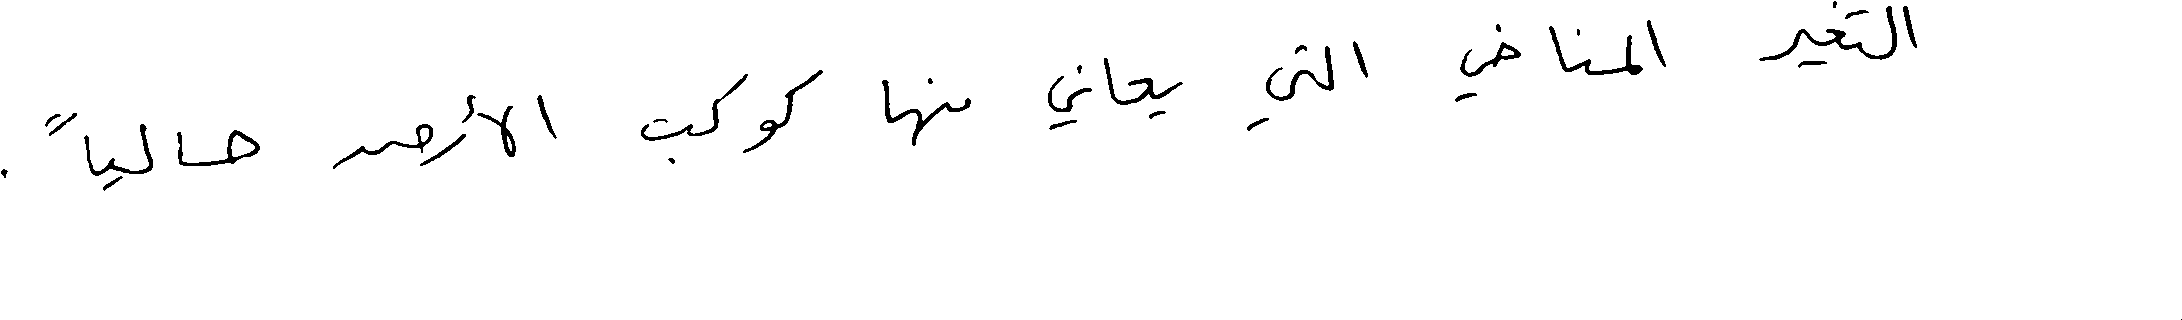 التغير المناخي التي يعاني منها كوكب الأرض حالياً .